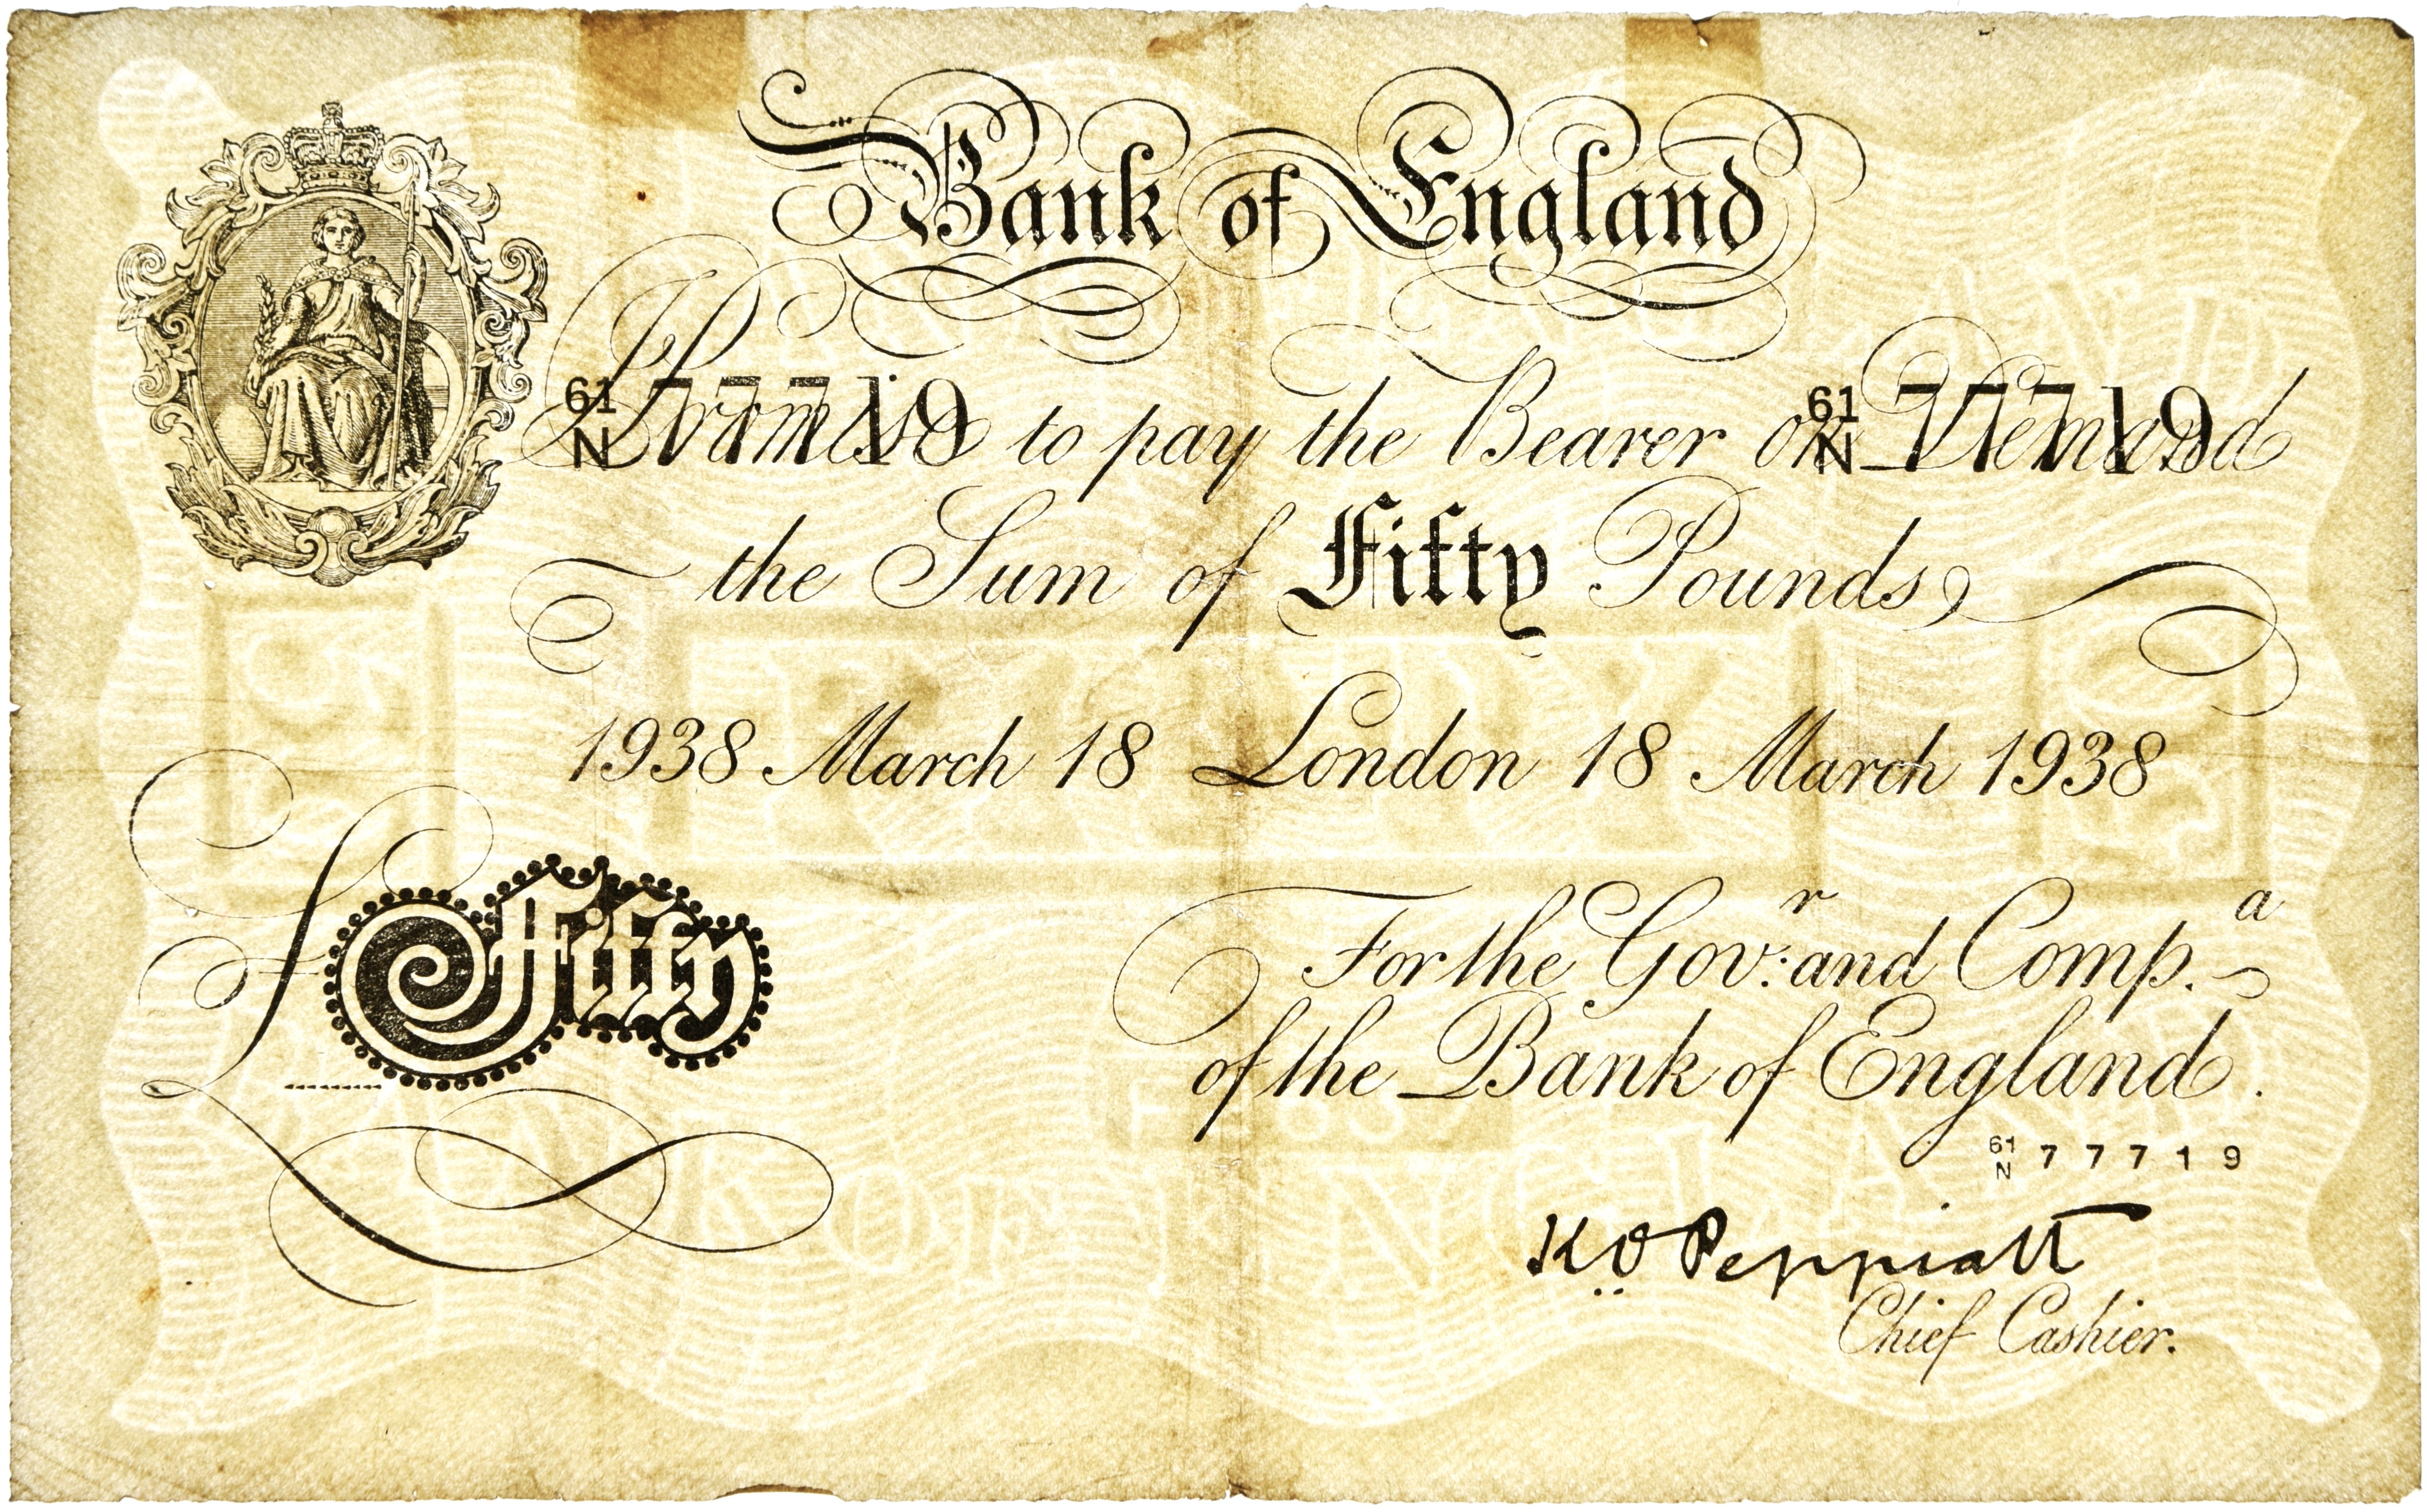 Bank of England
61 N 77719 61 N 77719
I Promise to pay the Bearer on Demand
the Sum of Fifty Pounds
1938 March 18 London 18 March 1938
£Fifty
For the Gov.r and Comp.a
of the Bank of England.
61 N 77719
K O Peppiatt
Chief Cashier.